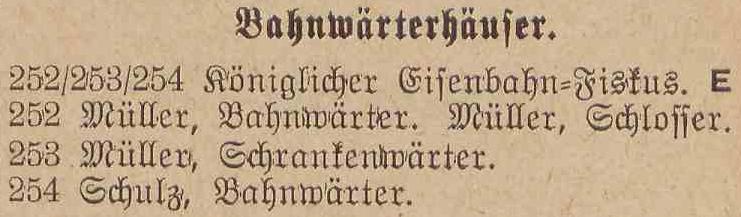 Bahnwärterhäuser.
252/253/254 Königlicher Eisenbahn-Fiskus. E
252 Müller, Bahnwärter. Müller, Schlosser.
253 Müller, Schrankenwärter.
254 Schulz, Bahnwärter.